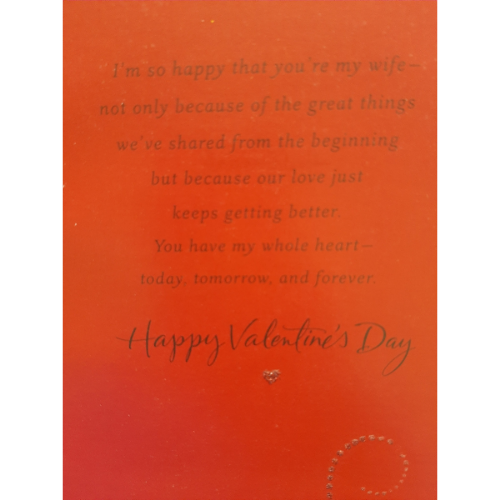 I'm so happy that you're my wife—
not only because of the great things
we've shared from the beginning
but because our love just
keeps getting better.
You have my whole heart—
today, tomorrow, and forever.
Happy Valentine's Day